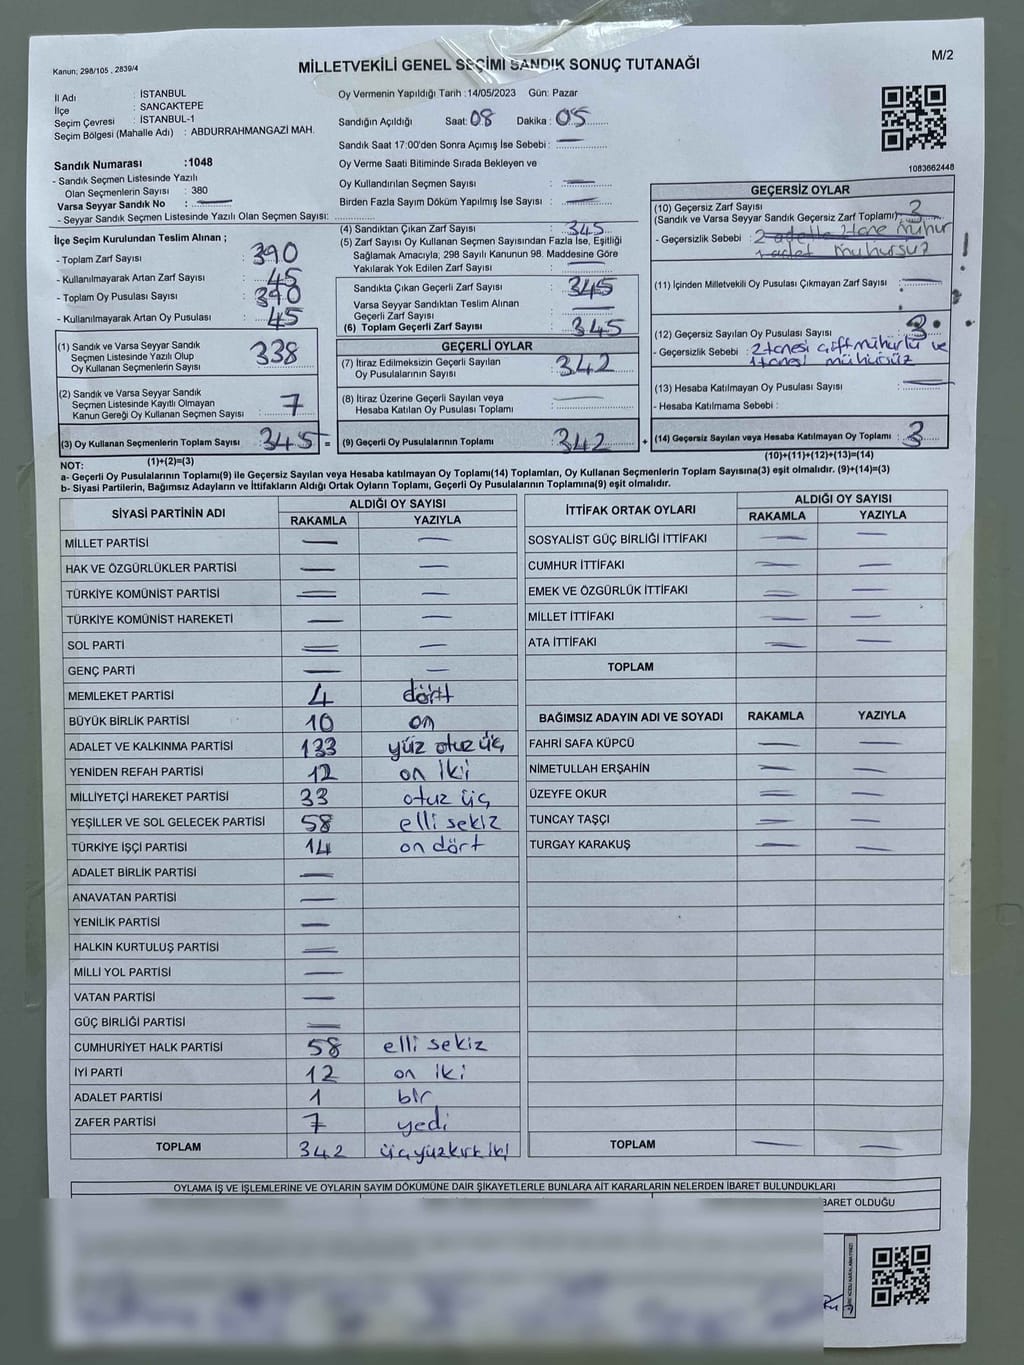 Kanun; 298/105 , 2839/4
MİLLETVEKİLİ GENEL SEÇİMİ SANDIK SONUÇ TUTANAĞI
M/2
İl Adı : İSTANBUL
İlçe : SANCAKTEPE
Seçim Çevresi : İSTANBUL-1
Seçim Bölgesi (Mahalle Adı) : ABDURRAHMANGAZİ MAH.
Sandık Numarası :1048
- Sandık Seçmen Listesinde Yazılı
Olan Seçmenlerin Sayısı : 380
Varsa Seyyar Sandık No :
- Seyyar Sandık Seçmen Listesinde Yazılı Olan Seçmen Sayısı:
Oy Vermenin Yapıldığı Tarih :14/05/2023 Gün: Pazar
Sandığın Açıldığı Saat: 08 Dakika : 05
Sandık Saat 17:00'den Sonra Açımış İse Sebebi : —
Oy Verme Saati Bitiminde Sırada Bekleyen ve
Oy Kullandırılan Seçmen Sayısı : —
Birden Fazla Sayım Döküm Yapılmış İse Sayısı : —
1083662448
İlçe Seçim Kurulundan Teslim Alınan ;
- Toplam Zarf Sayısı : 390
- Kullanılmayarak Artan Zarf Sayısı : 45
- Toplam Oy Pusulası Sayısı : 390
- Kullanılmayarak Artan Oy Pusulası : 45
(1) Sandık ve Varsa Seyyar Sandık
Seçmen Listesinde Yazılı Olup
Oy Kullanan Seçmenlerin Sayısı : 338
(2) Sandık ve Varsa Seyyar Sandık
Seçmen Listesinde Kayıtlı Olmayan
Kanun Gereği Oy Kullanan Seçmen Sayısı : 7
(3) Oy Kullanan Seçmenlerin Toplam Sayısı : 345 =
(1)+(2)=(3)
(4) Sandıktan Çıkan Zarf Sayısı : 345
(5) Zarf Sayısı Oy Kullanan Seçmen Sayısından Fazla İse, Eşitliği
Sağlamak Amacıyla, 298 Sayılı Kanunun 98. Maddesine Göre
Yakılarak Yok Edilen Zarf Sayısı : —
Sandıkta Çıkan Geçerli Zarf Sayısı : 345
Varsa Seyyar Sandıktan Teslim Alınan
Geçerli Zarf Sayısı :
(6) Toplam Geçerli Zarf Sayısı : 345
GEÇERLİ OYLAR
(7) İtiraz Edilmeksizin Geçerli Sayılan
Oy Pusulalarının Sayısı : 342
(8) İtiraz Üzerine Geçerli Sayılan veya
Hesaba Katılan Oy Pusulası Toplamı : —
(9) Geçerli Oy Pusulalarının Toplamı : 342 +
GEÇERSİZ OYLAR
(10) Geçersiz Zarf Sayısı
(Sandık ve Varsa Seyyar Sandık Geçersiz Zarf Toplamı) : 3
- Geçersizlik Sebebi : 2 adette 2tane mühür
1 adet mühürsüz
(11) İçinden Milletvekili Oy Pusulası Çıkmayan Zarf Sayısı : —
(12) Geçersiz Sayılan Oy Pusulası Sayısı : 3
- Geçersizlik Sebebi : 2 tanesi çift mühürlü ve
1 tanesi mühürsüz
(13) Hesaba Katılmayan Oy Pusulası Sayısı : —
- Hesaba Katılmama Sebebi :
(14) Geçersiz Sayılan veya Hesaba Katılmayan Oy Pusulası Toplamı : 3
(10)+(11)+(12)+(13)=(14)
NOT:
a- Geçerli Oy Pusulalarının Toplamı(9) ile Geçersiz Sayılan veya Hesaba katılmayan Oy Toplamı(14) Toplamları, Oy Kullanan Seçmenlerin Toplam Sayısına(3) eşit olmalıdır. (9)+(14)=(3)
b- Siyasi Partilerin, Bağımsız Adayların ve İttifakların Aldığı Ortak Oyların Toplamı, Geçerli Oy Pusulalarının Toplamına(9) eşit olmalıdır.
SİYASİ PARTİNİN ADI
ALDIĞI OY SAYISI
RAKAMLA YAZIYLA
MİLLET PARTİSİ — —
HAK VE ÖZGÜRLÜKLER PARTİSİ — —
TÜRKİYE KOMÜNİST PARTİSİ — —
TÜRKİYE KOMÜNİST HAREKETİ — —
SOL PARTİ — —
GENÇ PARTİ — —
MEMLEKET PARTİSİ 4 dört
BÜYÜK BİRLİK PARTİSİ 10 on
ADALET VE KALKINMA PARTİSİ 133 yüz otuz üç
YENİDEN REFAH PARTİSİ 12 on iki
MİLLİYETÇİ HAREKET PARTİSİ 33 otuz üç
YEŞİLLER VE SOL GELECEK PARTİSİ 58 elli sekiz
TÜRKİYE İŞÇİ PARTİSİ 14 on dört
ADALET BİRLİK PARTİSİ —
ANAVATAN PARTİSİ —
YENİLİK PARTİSİ —
HALKIN KURTULUŞ PARTİSİ —
MİLLİ YOL PARTİSİ —
VATAN PARTİSİ —
GÜÇ BİRLİĞİ PARTİSİ —
CUMHURİYET HALK PARTİSİ 58 elli sekiz
İYİ PARTİ 12 on iki
ADALET PARTİSİ 1 bir
ZAFER PARTİSİ 7 yedi
TOPLAM 342 üçyüzkırk iki
İTTİFAK ORTAK OYLARI
ALDIĞI OY SAYISI
RAKAMLA YAZIYLA
SOSYALİST GÜÇ BİRLİĞİ İTTİFAKI — —
CUMHUR İTTİFAKI — —
EMEK VE ÖZGÜRLÜK İTTİFAKI — —
MİLLET İTTİFAKI — —
ATA İTTİFAKI — —
TOPLAM
BAĞIMSIZ ADAYIN ADI VE SOYADI RAKAMLA YAZIYLA
FAHRİ SAFA KÜPCÜ — —
NİMETULLAH ERŞAHİN — —
ÜZEYFE OKUR — —
TUNCAY TAŞÇI — —
TURGAY KARAKUŞ — —
TOPLAM — —
OYLAMA İŞ VE İŞLEMLERİNE VE OYLARIN SAYIM DÖKÜMÜNE DAİR ŞİKAYETLERLE BUNLARA AİT KARARLARIN NELERDEN İBARET BULUNDUKLARI
BARET OLDUĞU